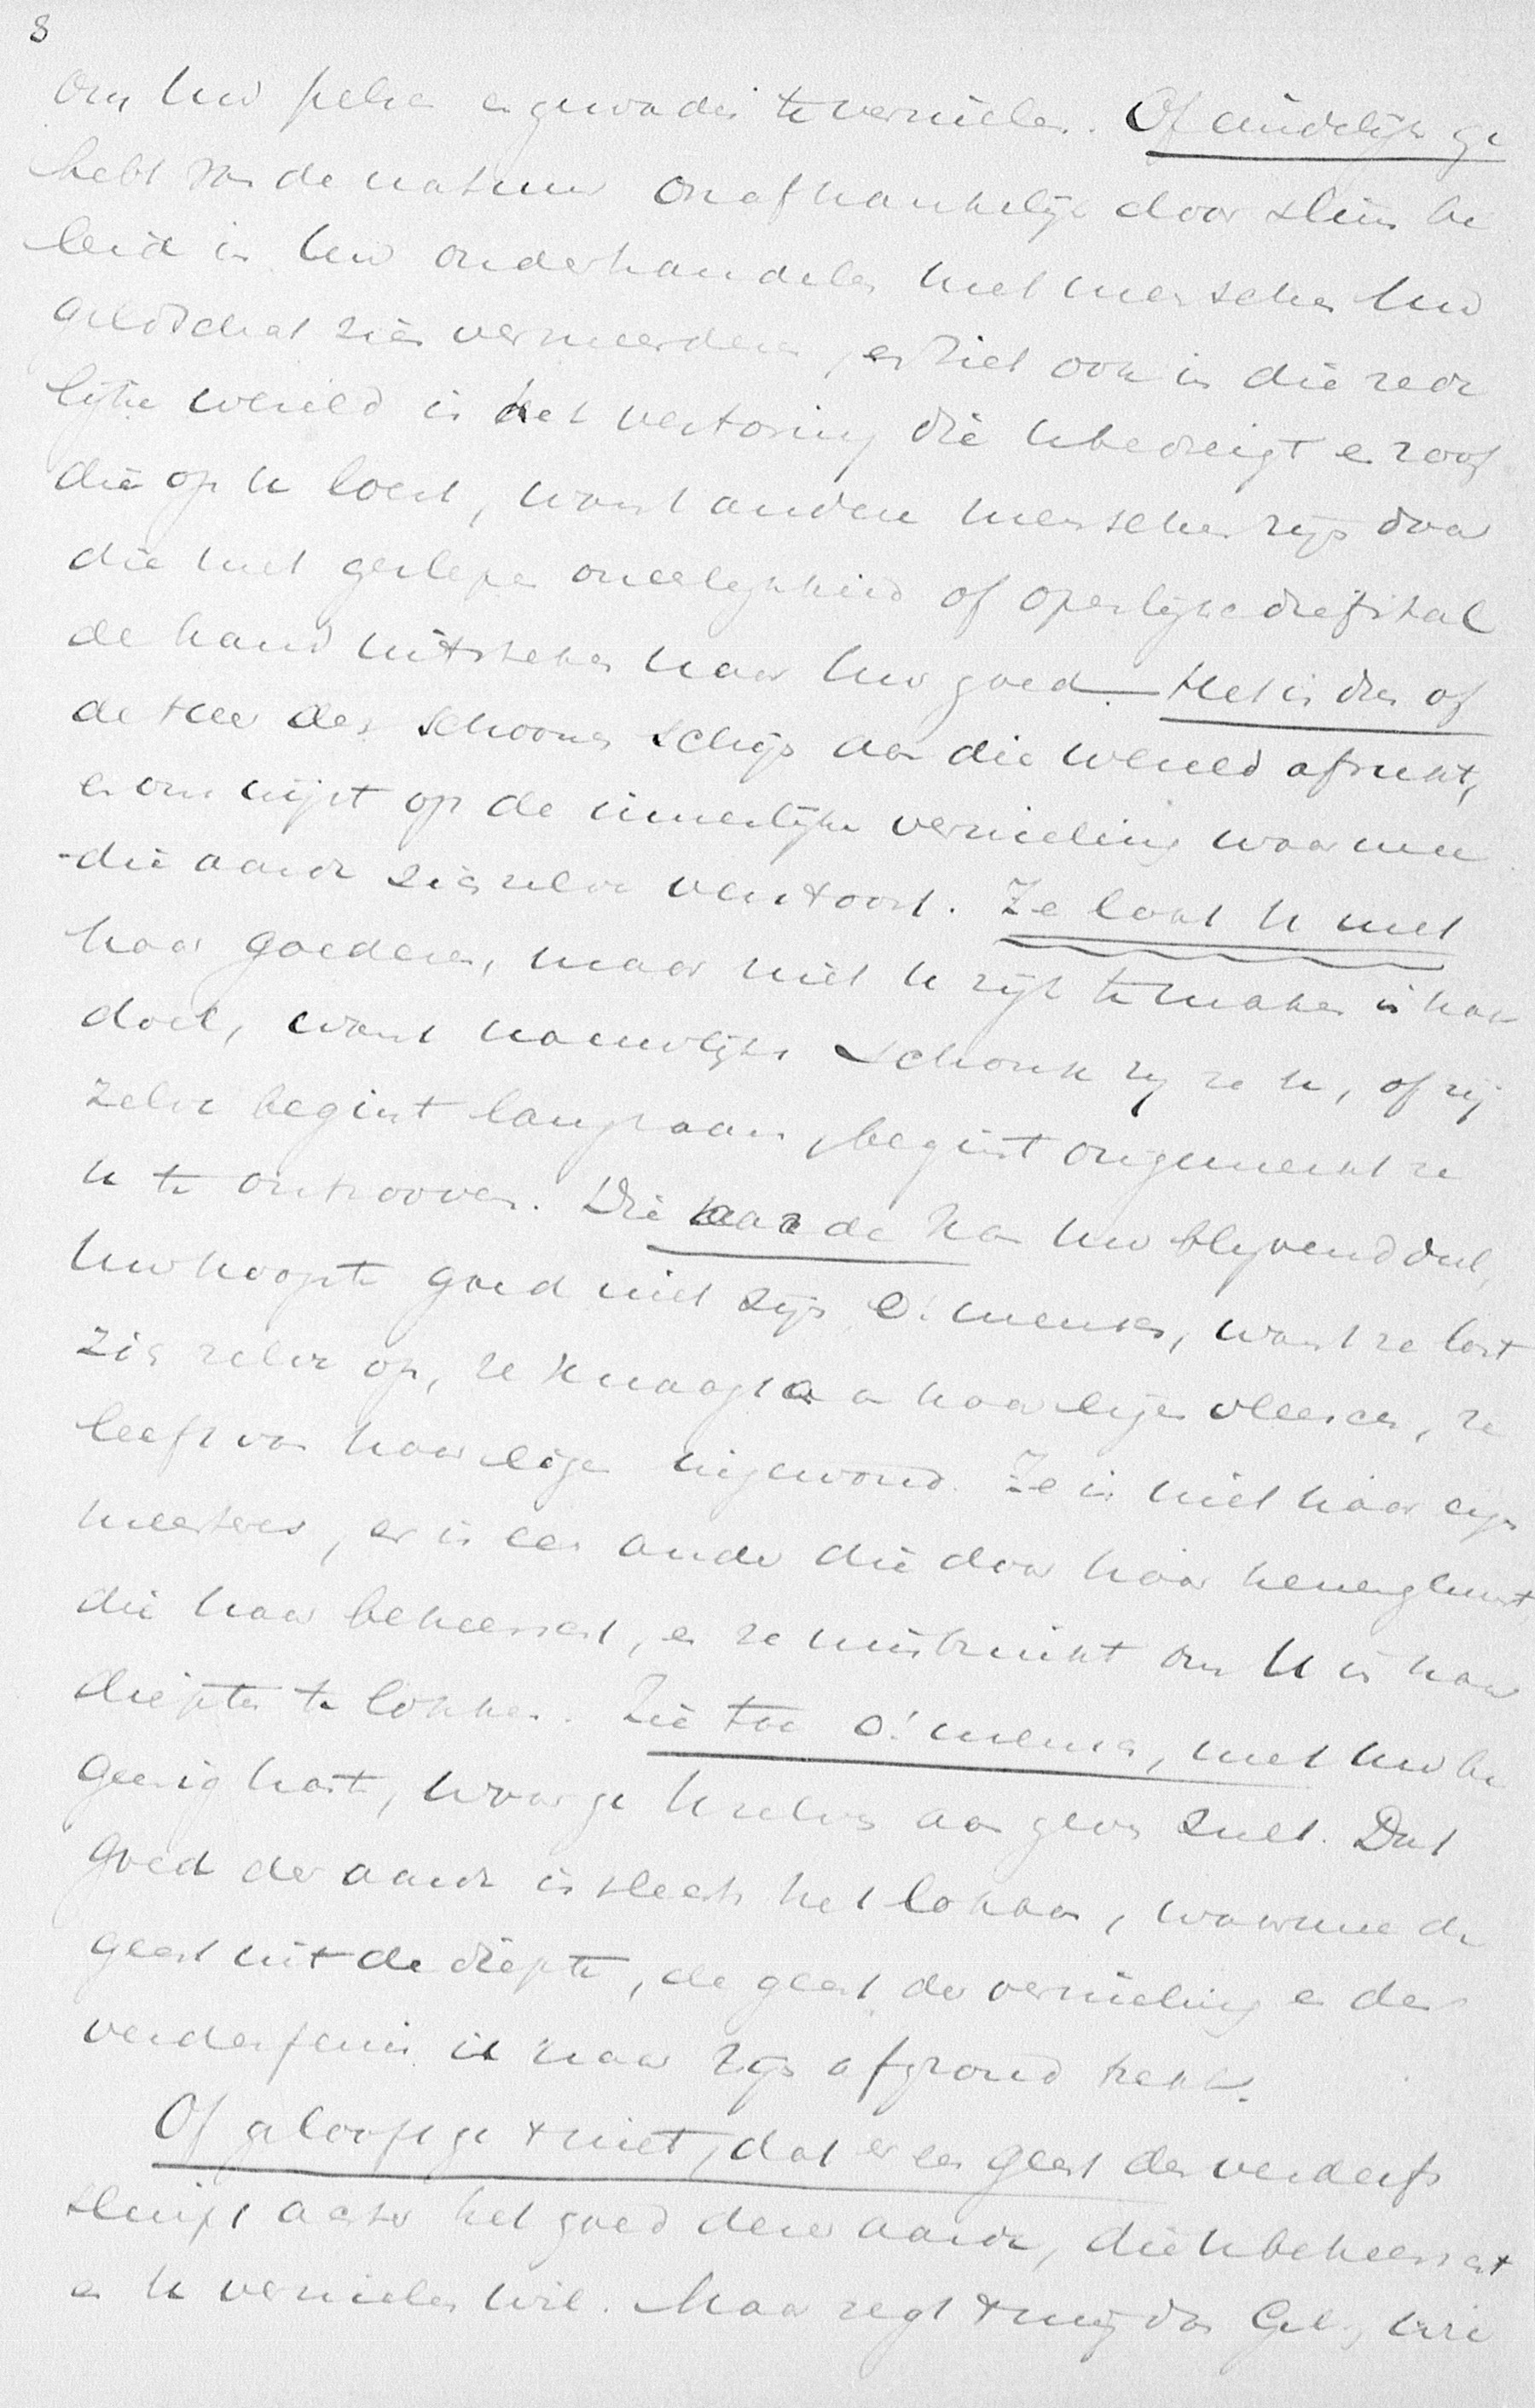 8
om Uw pelsen en gewaden te vernielen. Of eindelijk ge
hebt van de natuur onafhankelijk door slim be
leid in Uw onderhandelen met menschen Uw
geldschat zien vermeerderen, en ziet ook in die zede
lijke wereld is het verstoring die U bedreigt en roof
die op U loert, want andere menschen zijn daar
die met geslepen oneerlijkheid of openlijke diefstal
de hand uitsteken naar Uw goed. Het is dus of
de Heer den schoonen schijn aan die wereld afrukt,
en ons wijst op de innerlijke vernieling waarmee
die aarde zich zelve verstoort. Ze lokt U met
haar goederen, maar niet U rijk te maken is haar
doel, want nauwelijks schonk zij ze U, of zij
zelve begint langzaam, begint ongemerkt ze
U te ontrooven. Die aarde kan Uw blijvend doel,
Uw hoogste goed niet zijn o! mensch, want ze lost
zich zelve op, ze knaagt aan haar eigen vleesch, ze
leeft van haar eigen ingewand. Ze is niet haar eigen
meesteres, er is een ander die door haar henengluurt
die haar beheerscht, en ze misbruikt om U in haar
diepten te lokken. Zie toe o! mensch, met Uw be
geerig hart, waar ge U zelven aan geven zult. Dat
goed der aarde is slechts het lokaas, waarmee de
geest uit de diepte, de geest der vernieling en der
verderfenis U naar zijn afgrond trekt.
Of gelooft ge 't niet, dat er een geest des verderfs
sluipt achter het goed dezer aarde, die U beheerscht
en U vernielen wil. Maar zegt 't mij dan Gel., wie